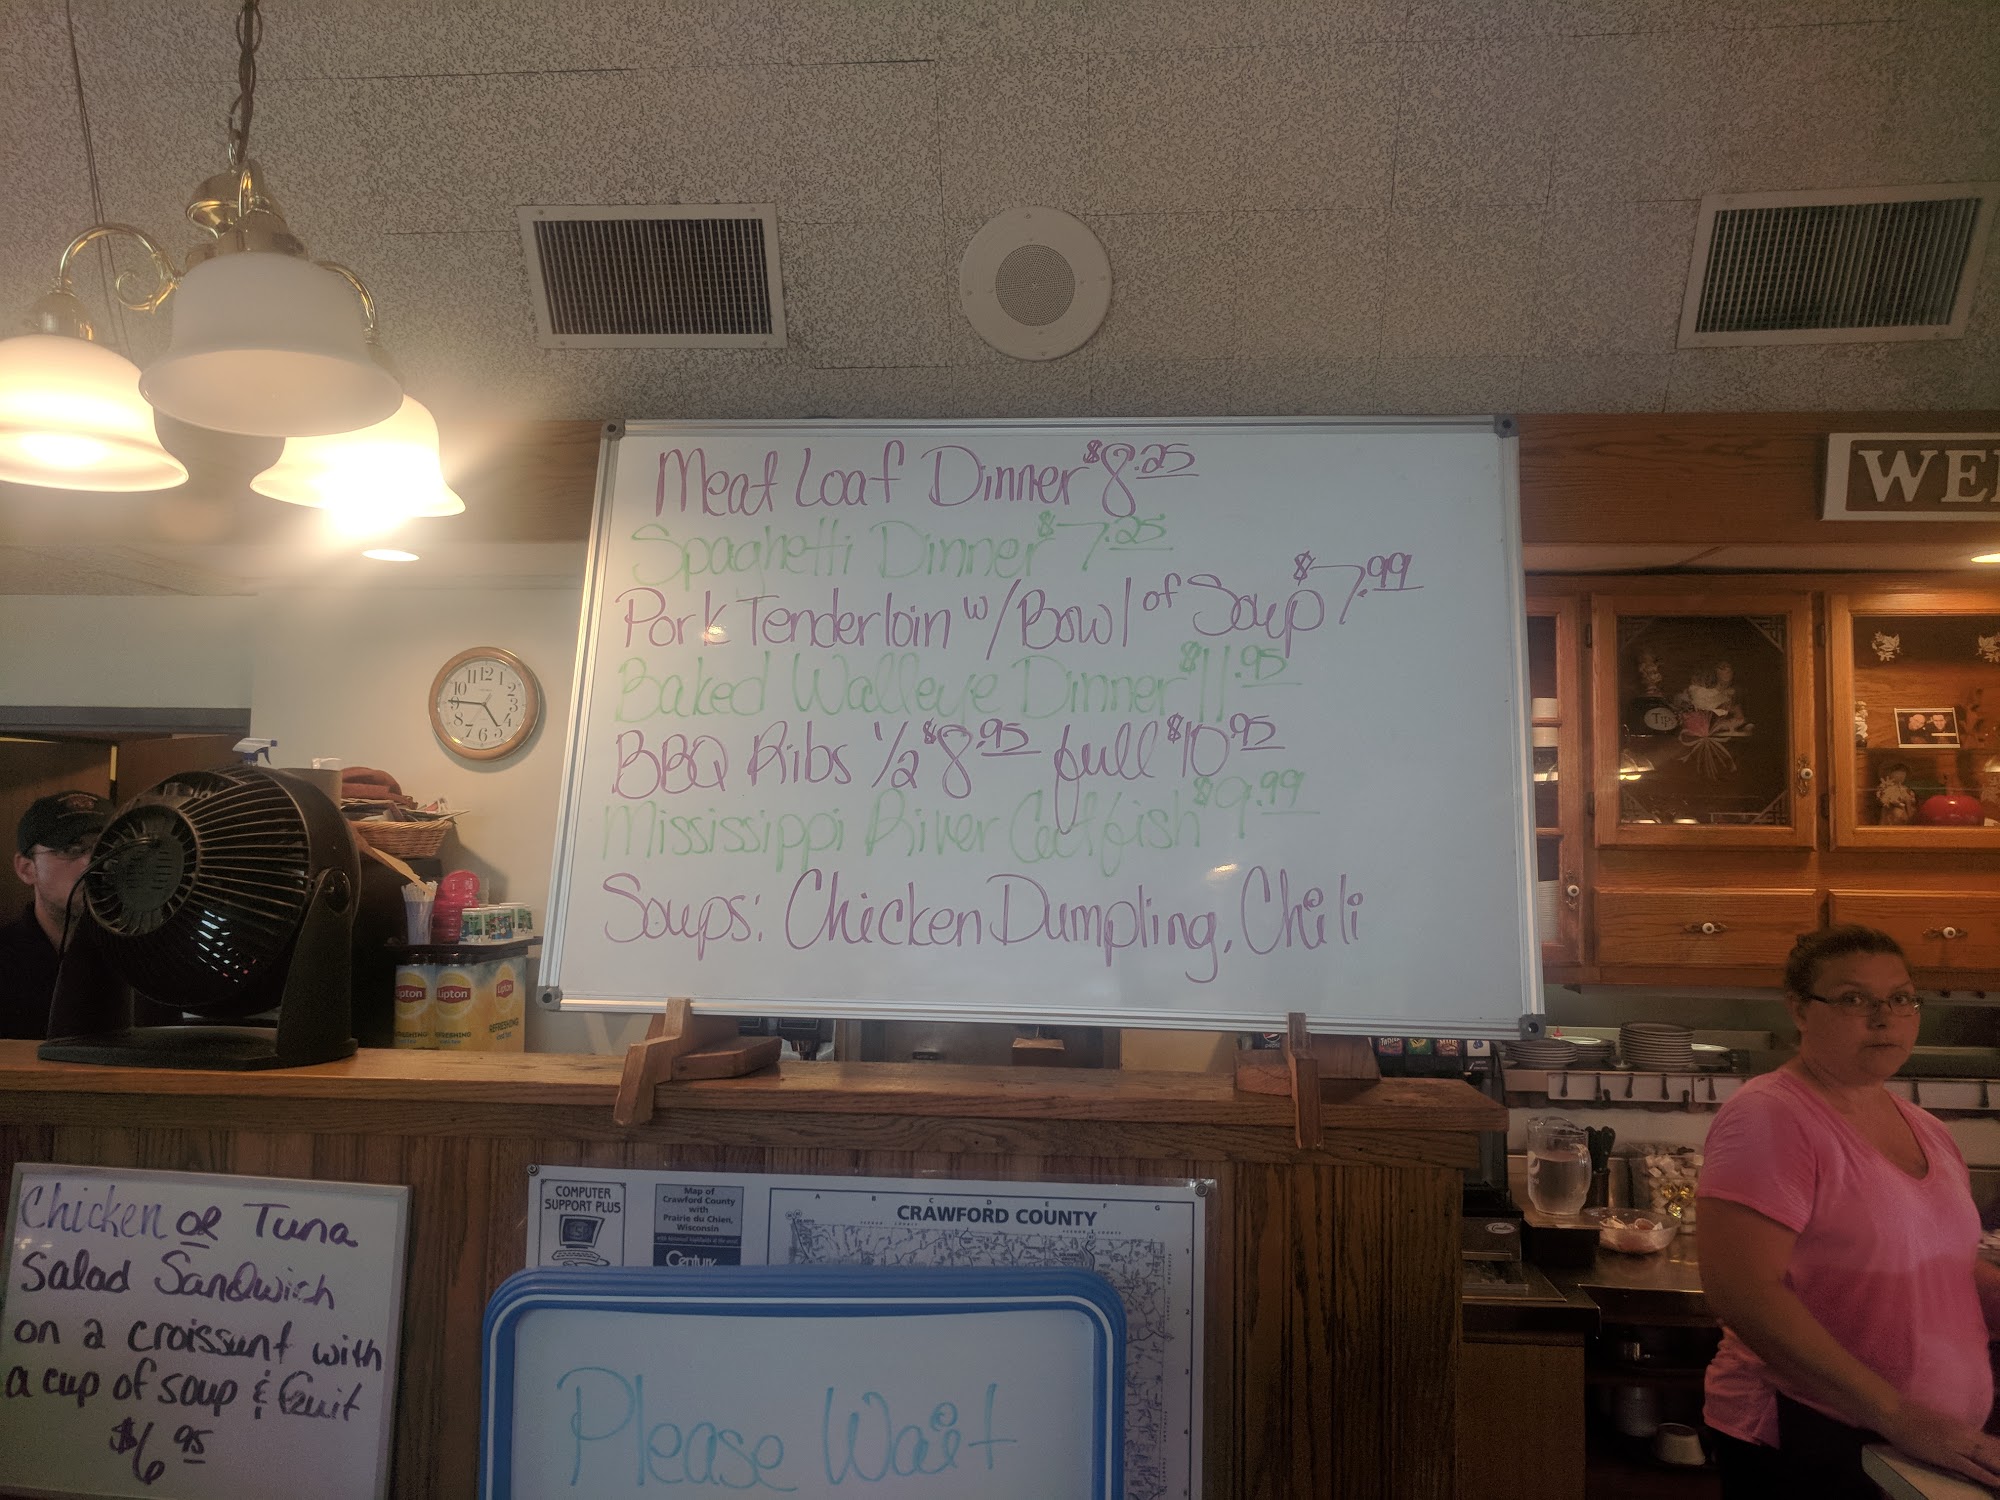 Meat Loaf Dinner $8.25
Spaghetti Dinner $7.25
Pork Tenderloin w/Bowl of Soup $7.99
Baked Walleye Dinner $11.95
BBQ Ribs 1/2 $8.95 full $10.95
Mississippi River Catfish $9.99
Soups: Chicken Dumpling, Chili
WEL
12
11
1
10
2
9
3
8
4
7
6
5
Tips
Lipton
Lipton
Lipton
REFRESHING
REFRESHING
Chicken or Tuna
Salad Sandwich
on a croissunt with
a cup of soup & fruit
$6.95
COMPUTER
SUPPORT PLUS
Map of
Crawford County
with
Prairie du Chien,
Wisconsin
Century
A B C D E F G
CRAWFORD COUNTY
Please Wait